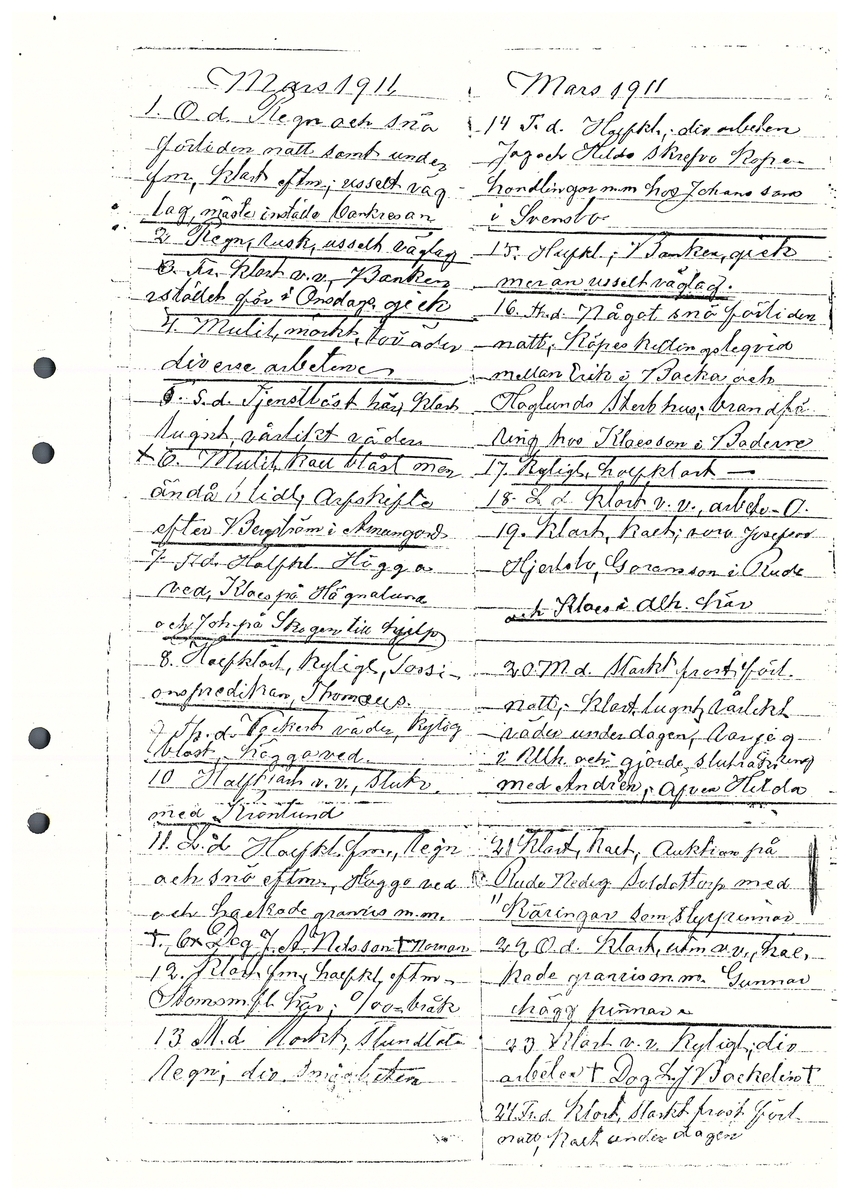 Mars 1911
1. O d. Regn och snö
förliden natt samt under
fm, klart eftm; usselt väg
lag, måste inställa bankresan
2. Regn, rusk, usselt väglag
3. Fr. klart v.v., Banken
istället för i Onsdags, gick
4. Mulit, mörkt, töväder
diverse arbeten
5. S.d. Tjenstlöst här, klart
lugnt, vårlikt väder
x 6. Mulit, kall blåst men
ändå blidt, Arfskifte
efter Bergström i
7 Td. Halfkl. Högg
ved, Klaes på Högnalund
och Joh. på Skogen till hjelp
8. Halfklart, kyligt,
onspredikan, Thomæus.
9 Th. d. Vackert väder, kylig
blåst, högg ved.
10 Halfklart v.v., slukv.
med Kronlund
11. L.d Halfkl. fm., Regn
och snö eftm., Högg ved
och hackade granris m.m.
†. Dog J. A. Nilsson † Norman
12. Klart fm, halfkl, eftm.
här; %-bråk
13 M.d Mörkt, stundtals
regn; div. småarbeten
Mars 1911
14 T. d. Halfkl.; div arbeten
Jag och Hilda skrefvo Köpe-
handlingar m m hos Johansson
i Svensbo
15. Halfkl.; Banken, gick
mer än usselt väglag.
16. Th.d. Något snö förliden
natt; Köpeskillingslegvid
mellan Erik i Backa och
Höglunds Sterbhus; brandför
ring hos Klaesson i Baderne
17. Kyligt, halfklart —
18. L d klart v.v., arbete - O.
19. Klart, kallt; voro Josefson
Hjertsbo, Göransson i Rude
och Klaes i Alh. här
20. M d. starkt frost förl.
natt; klart, lugnt, vårlikt
väder under dagen, var jag
i Ulk och gjorde sluträkning
med Andrén; Äfven Hilda
21 Klart, kallt; Auktion på
Rude Nedig Soldattorp med
"Käringar som styfpinnar
22 O.d. Klart, utm v.v., hac-
kade granris m.m. Gunnar
högg pinnar
23 Klart v.v. kyligt; div
arbeten † Dog L. J Backelin †
24 Fr.d. klart, starkt frost förl.
natt, kallt under dagen